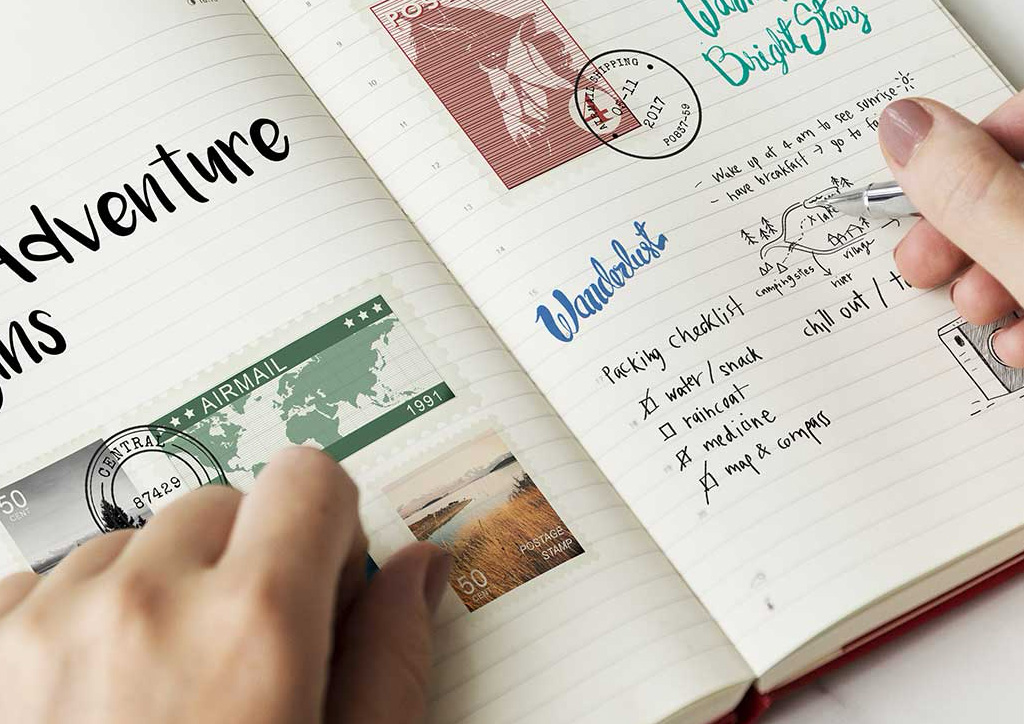 Adventure
AIRMAIL
1991
CENTRAL
87429
50
CENT
POSTAGE
STAMP
50
CENT
8
9
10
11
12
13
14
POS
AIRMAIL SHIPPING
08-11
2017
POB37-59
Bright Stars
- Wake up at 4 am to see sunrise
- have breakfast → go to
Wanderlust
x lake
village
campingsites
river
chill out /
Packing checklist
water / snack
raincoat
medicine
map & compass